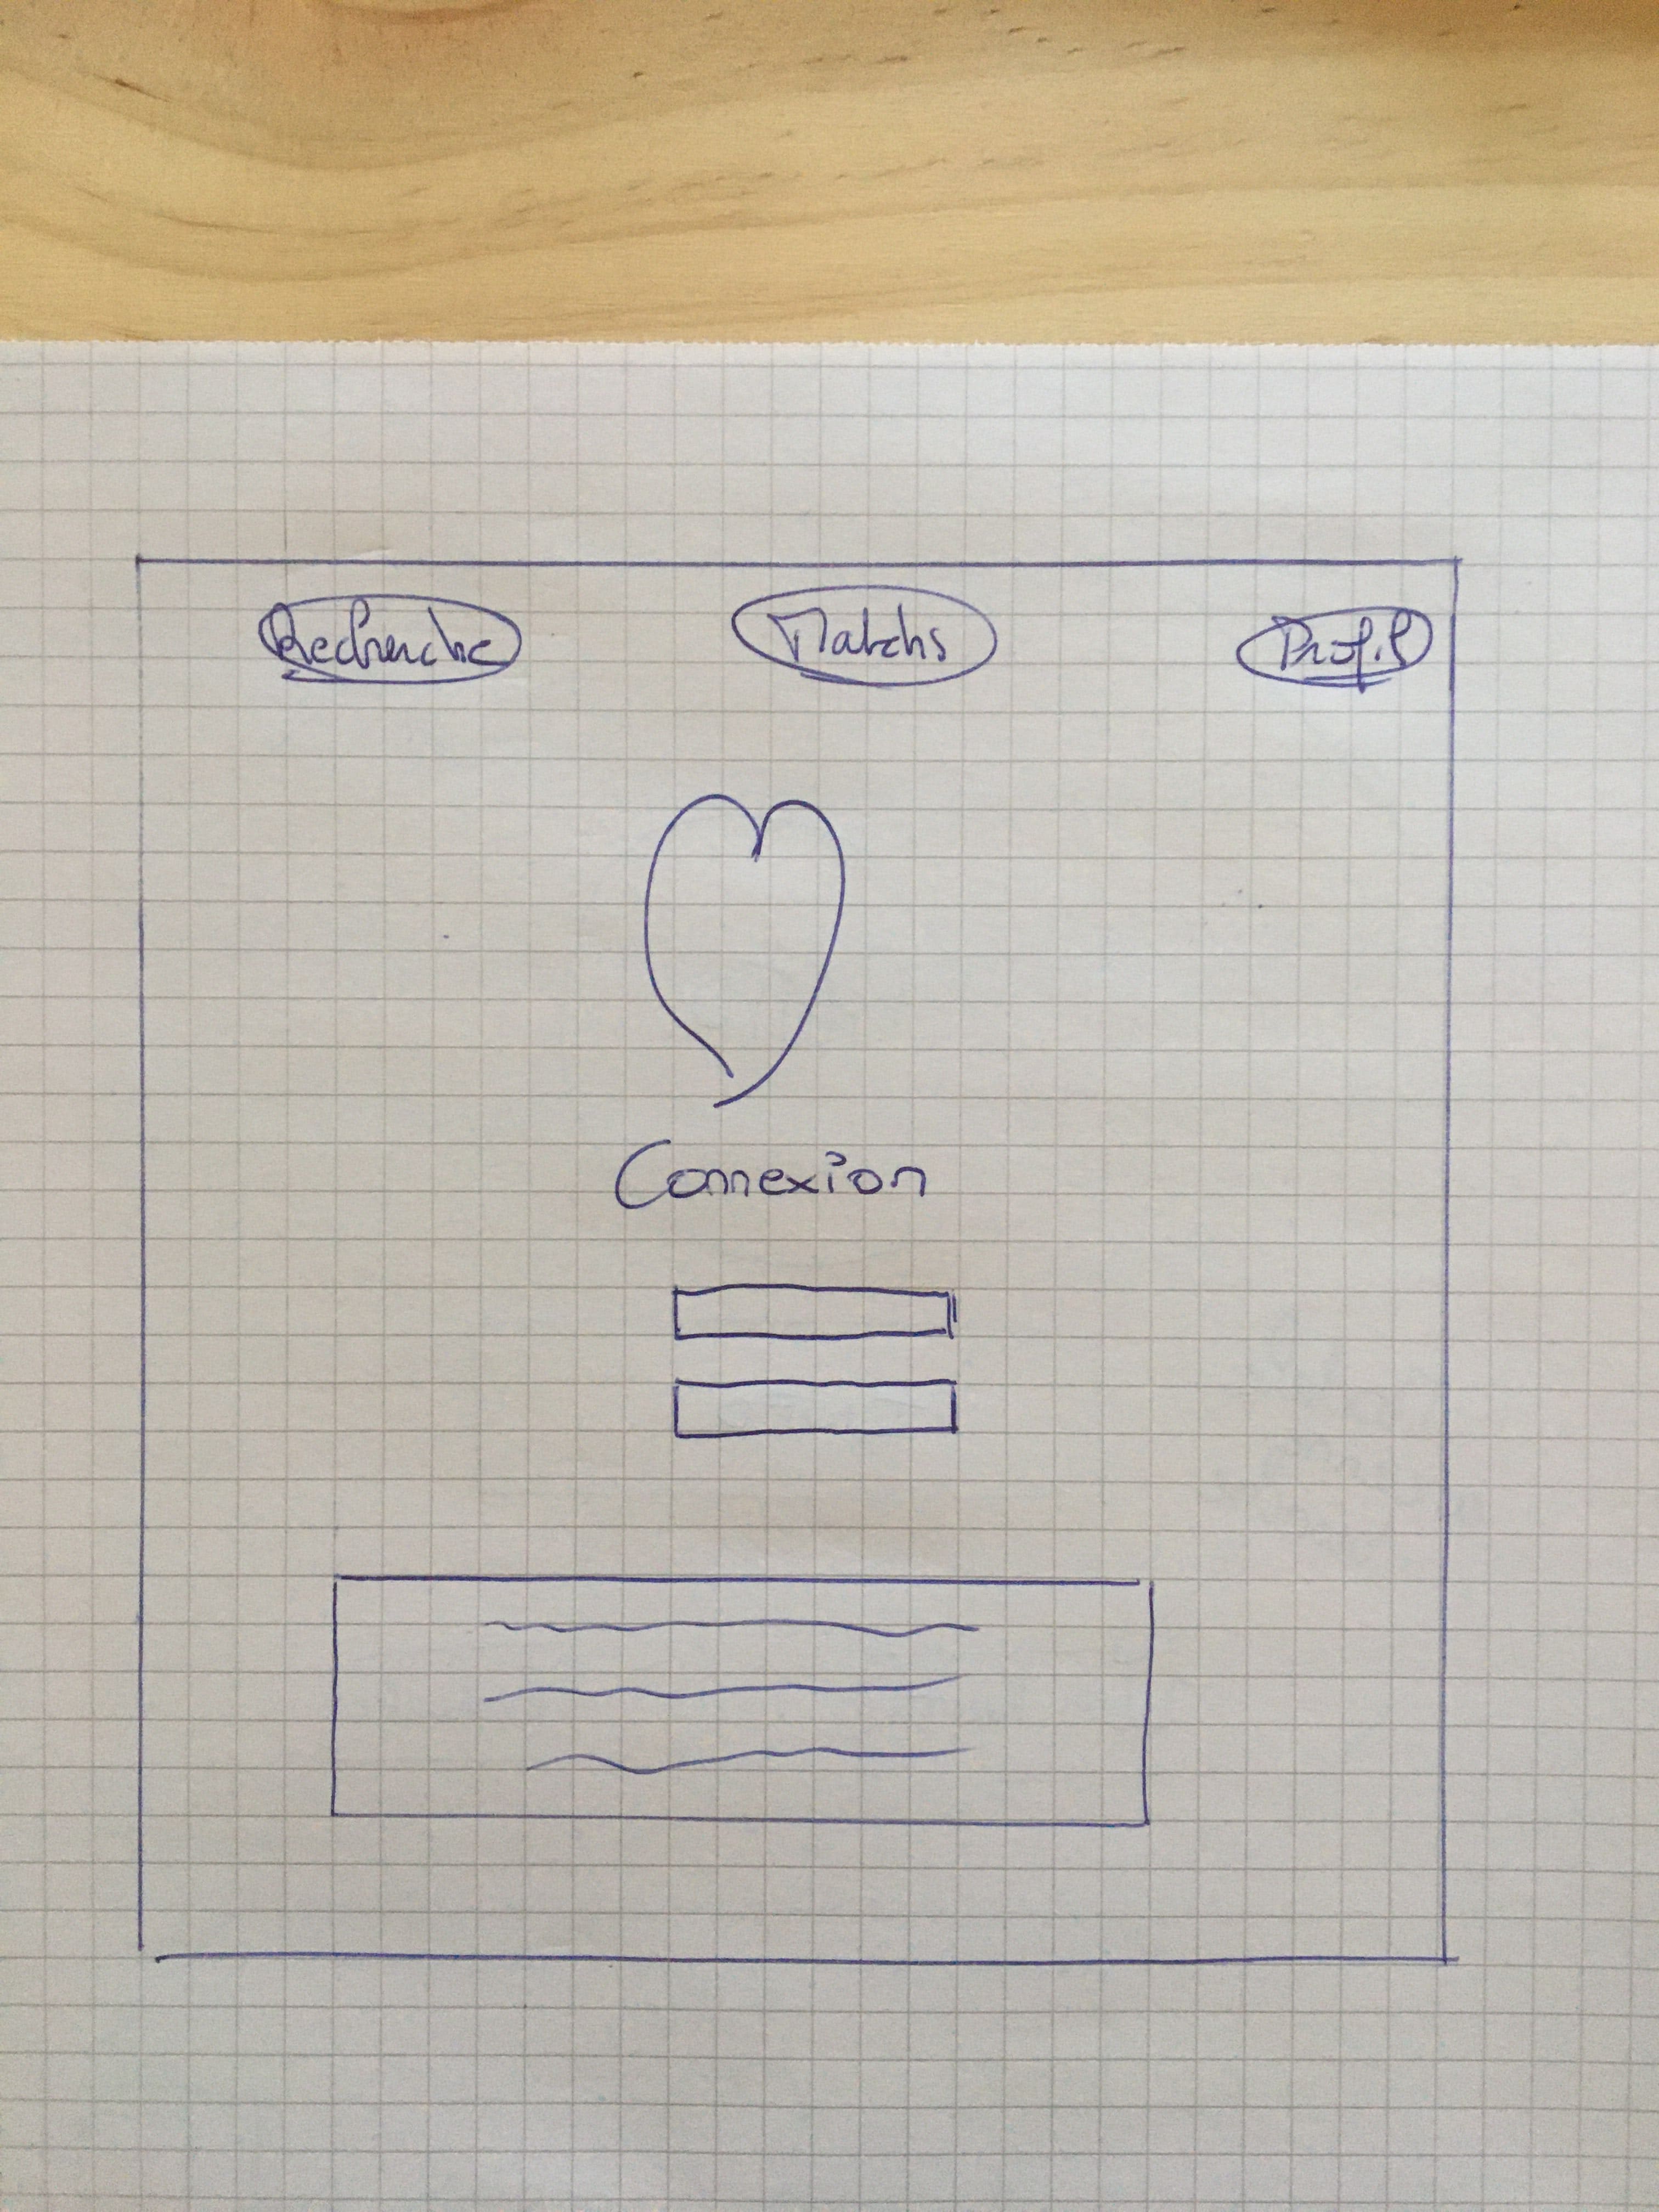 Recherche Matchs Profil
Connexion